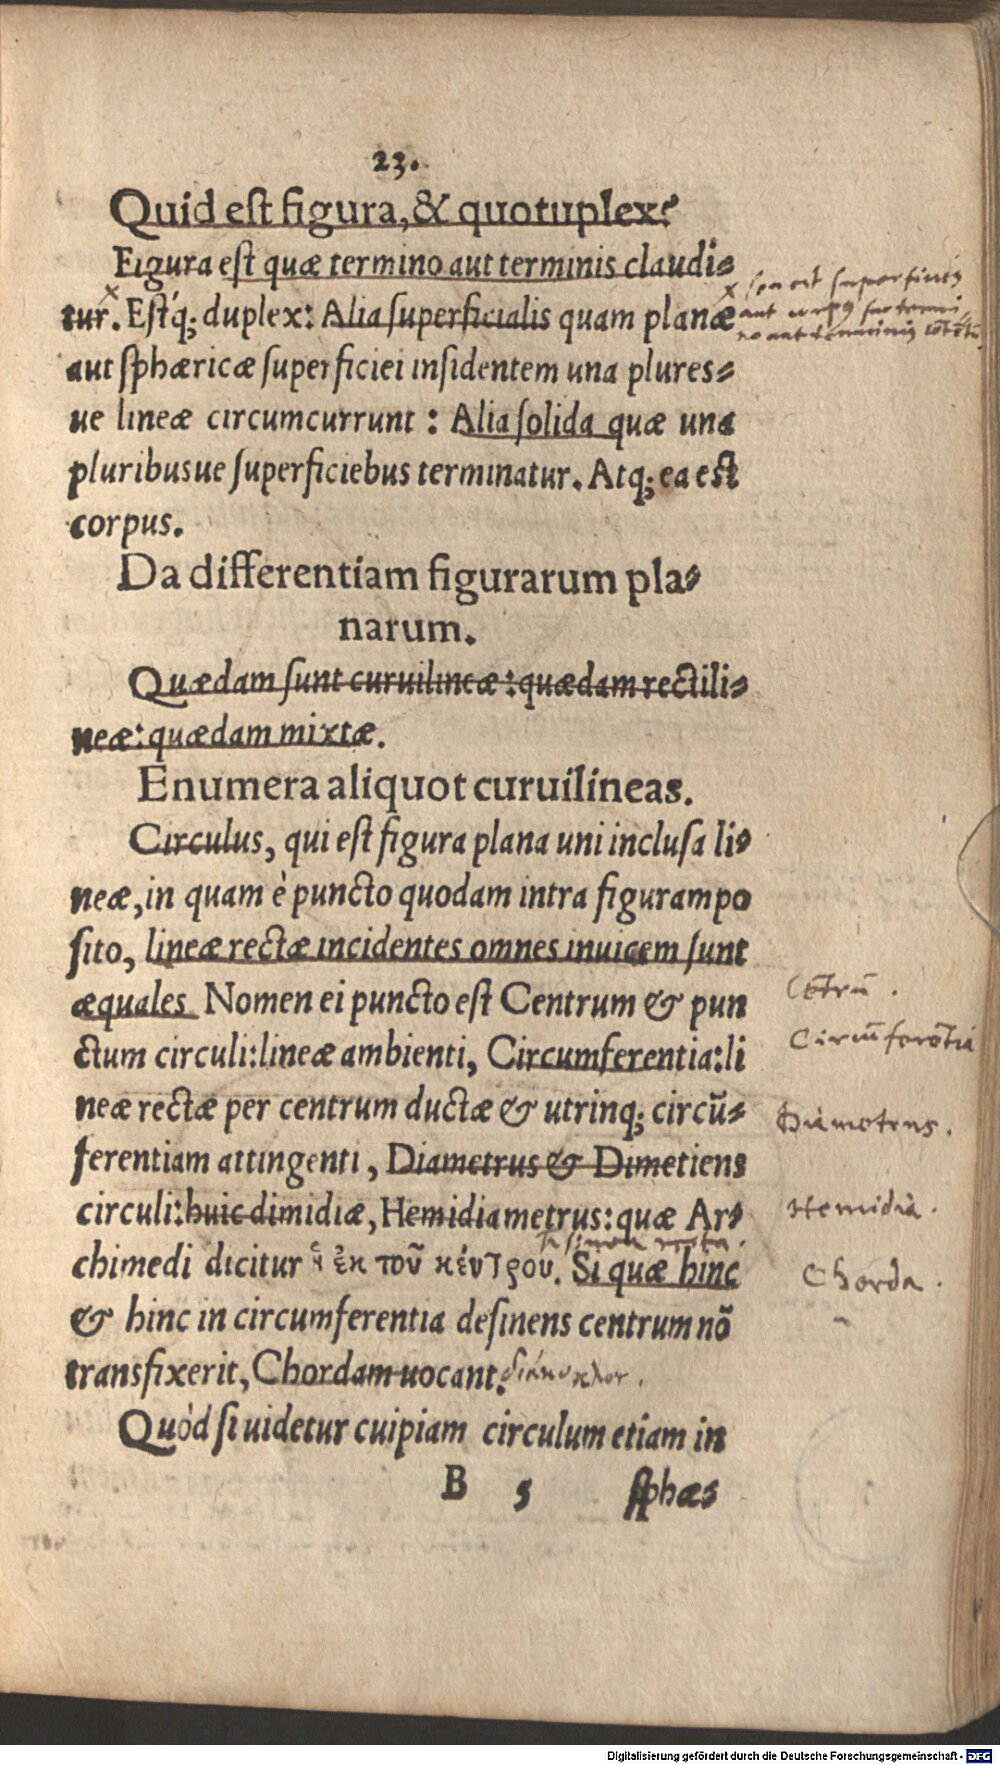 23.
Quid est figura, & quotuplex?
Figura est quæ termino aut terminis claudi-
tur. Estq; duplex: Alia superficialis quam planæ
aut sphæricæ superficiei insidentem una plures-
ue lineæ circumcurrunt : Alia solida quæ una
pluribusue superficiebus terminatur. Atq; ea est
corpus.
Da differentiam figurarum pla-
narum.
Quædam sunt curuilineæ: quædam rectili-
neæ: quædam mixtæ.
Enumera aliquot curuilineas.
Circulus, qui est figura plana uni inclusa li-
neæ, in quam è puncto quodam intra figuram po
sito, lineæ rectæ incidentes omnes inuicem sunt
æquales Nomen ei puncto est Centrum & pun
ctum circuli: lineæ ambienti, Circumferentia: li
Cẽtrũ .
neæ rectæ per centrum ductæ & utrinq; circũ-
Diametrus.
ferentiam attingenti, Diametrus & Dimetiens
circuli: huic dimidiæ, Hemidiametrus: quæ Ar-
Hemidia.
chimedi dicitur ἡ ἐκ τοῦ κέντρου. Si quæ hinc
Chorda .
& hinc in circumferentia desinens centrum nõ
transfixerit, Chordam uocant.
Quòd si uidetur cuipiam circulum etiam in
B 5 sphæ-
Digitalisierung gefördert durch die Deutsche Forschungsgemeinschaft - DFG